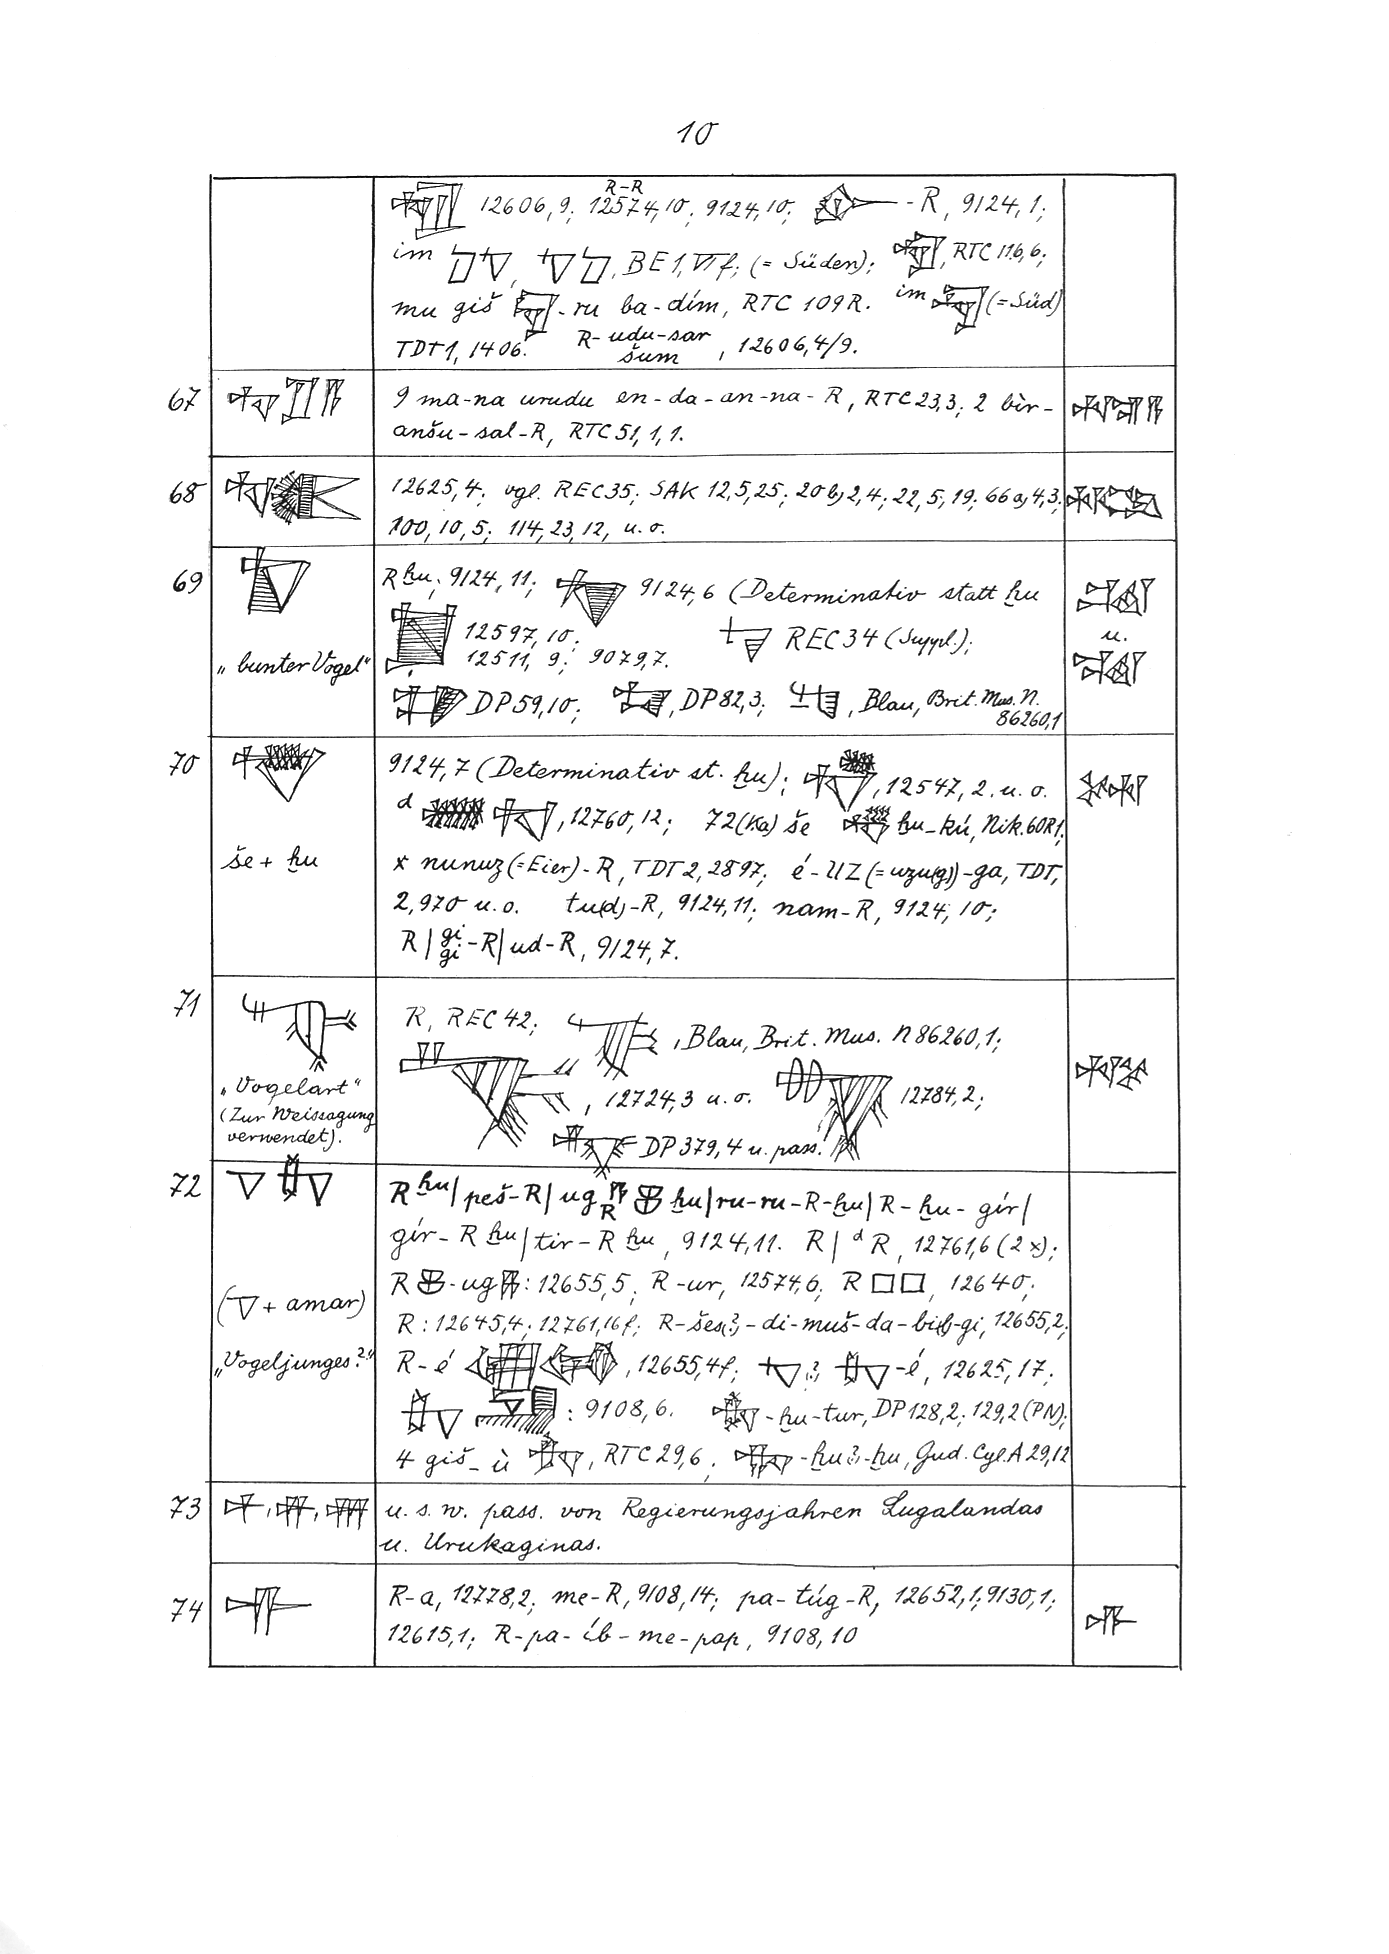 10
R-R
12606,9; 12574,10; 9124,10; -R, 9124,1;
im , , BE 1, VI f; (= Süden); , RTC 116,6;
mu giš -ru ba-dím, RTC 109 R. im (= Süd)
TDT 1, 1406. R-udu-sar šum, 12606,4/9.
67 9 ma-na urudu en-da-an-na-R, RTC 23,3; 2 bìr-
anšu-sal-R, RTC 51,1,1.
68 12625,4; vgl. REC 35; SAK 12,5,25; 20 b, 2,4; 22,5,19; 66 a, 4,3;
100,10,5; 114,23,12, u. o.
69 R ḫu; 9124,11; 9124,6 (Determinativ statt ḫu
12597,10; REC 34 (Suppl.);
„bunter Vogel“ 12511, 9; 9079,7.
u.
DP 59,10; , DP 82,3; , Blau, Brit. Mus. N.
86260,1
70 9124,7 (Determinativ st. ḫu); , 12547, 2. u. o.
d , 12760,12; 72 (Ka) še ḫu-kú, Nik. 60 R 1;
še + ḫu x nunuz (=Eier)-R, TDT 2,2897; é-UZ (=uzu(g))-ga, TDT,
2,970 u. o. tu(d)-R, 9124,11; nam-R, 9124,10;
R | gi gi -R | ud-R, 9124,7.
71 R, REC 42; , Blau, Brit. Mus. N 86260,1;
„Vogelart“ , 12724,3 u. o. 12784,2;
(Zur Weissagung
verwendet). DP 379,4 u. pass.
72 R ḫu | peš-R | ug R ḫu | ru-ru-R-ḫu | R-ḫu-gír |
gír-R ḫu | tir-R ḫu, 9124,11. R | d R, 12761,6 (2 x);
R -ug : 12655,5, R-ur, 12574,6, R , 12640;
( + amar) R : 12645,4; 12761,16 f; R-šeš(?)-di-muš-da-bi(b)-gi, 12655,2;
„Vogeljunges?“ R-é , 12655,4 f; ?, -é, 12625,17;
: 9108,6. -ḫu-tur, DP 128,2; 129,2 (PN);
4 giš-ù , RTC 29,6, -ḫu?-ḫu, Gud. Cyl. A 29,12
73 , , u. s. w. pass. von Regierungsjahren Lugalandas
u. Urukaginas.
74 R-a, 12778,2; me-R, 9108,14; pa-túg-R, 12652,1; 9130,1;
12615,1; R-pa-íb-me-pap, 9108,10